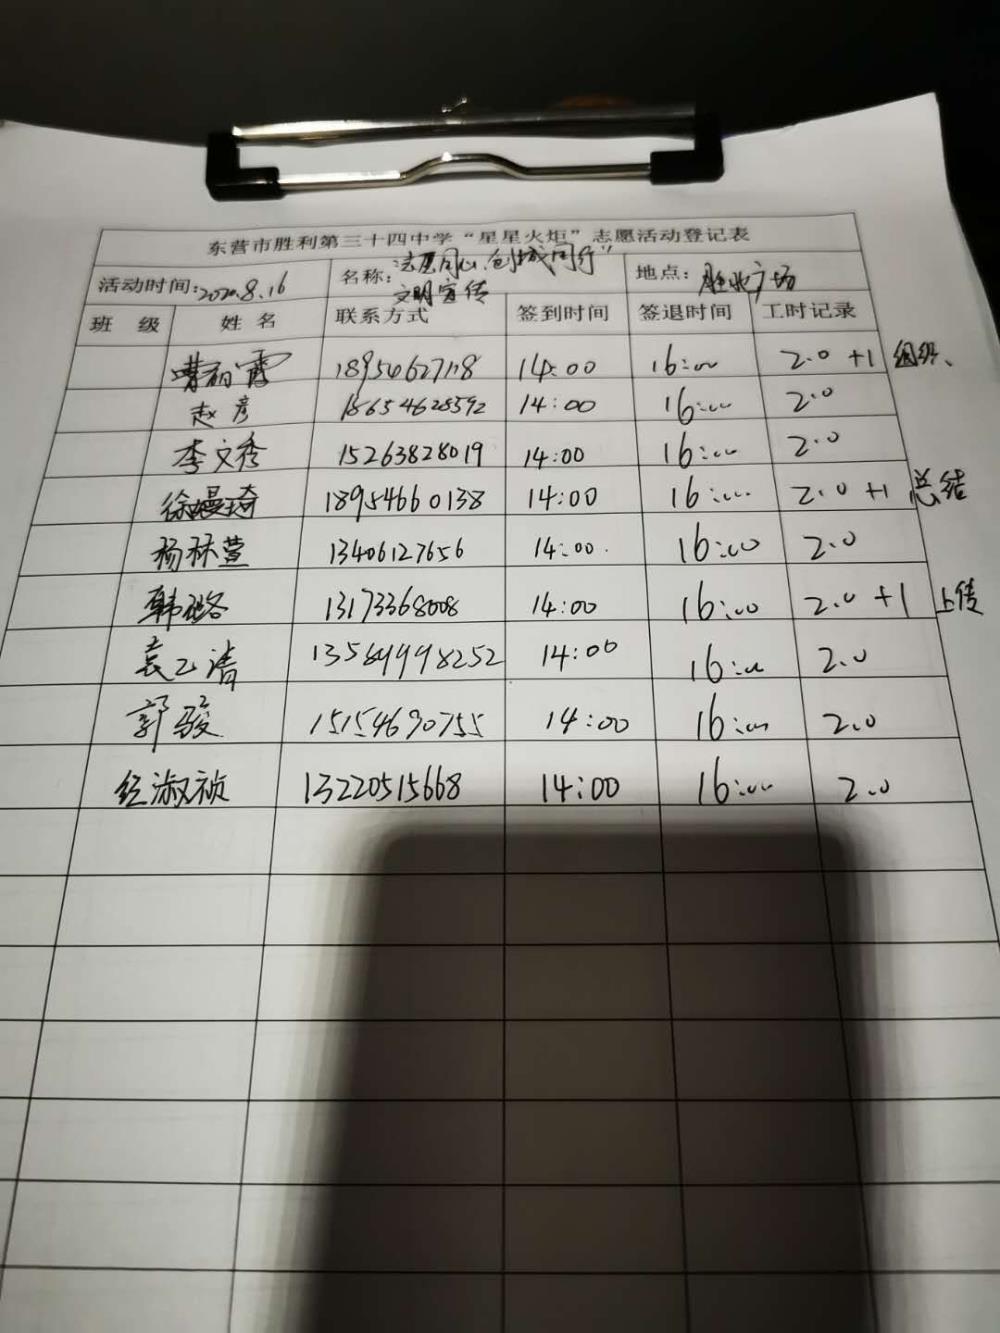 东营市胜利第三十四中学“星星火炬”志愿活动登记表
活动时间:2020.8.16 名称:志愿同心、创城同行” 文明宣传 地点: 广场
班 级 姓 名 联系方式 签到时间 签退时间 工时记录
曹 霞 18954627118 14:00 16:00 2.0 +1 组织、
赵彦 18654628592 14:00 16:00 2.0
李文秀 15263828019 14:00 16:00 2.0
徐嫚琦 18954660138 14:00 16:00 2.0 +1 总结
杨林萱 13406127656 14:00 16:00 2.0
韩璐 13173368008 14:00 16:00 2.0 +1 上传
袁乙清 14:00 16:00 2.0
郭骏 15154690755 14:00 16:00 2.0
纪淑祯 13220515668 14:00 16:00 2.0